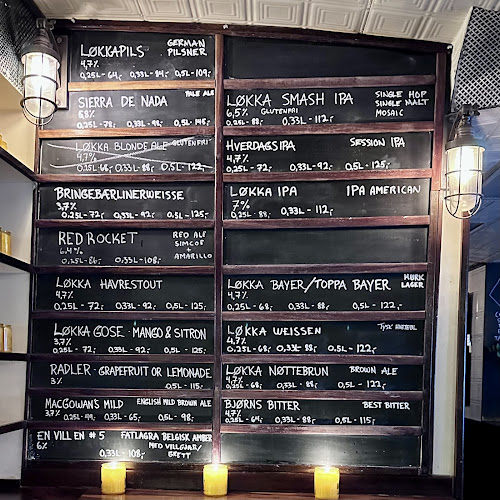 LØKKAPILS GERMAN
PILSNER
4,7%
0,25L - 64,- 0,33L - 84,- 0,5L - 109,-
SIERRA DE NADA PALE ALE
5,8%
0,25L - 78,- 0,33L - 98,- 0,5L - 145,-
LØKKA BLONDE ALE GLUTENFRI
4,7%
0,25L - 68,- 0,33L - 88,- 0,5L - 122,-
BRINGEBÆRLINERWEISSE
3,7%
0,25L - 72,- 0,33L - 92,- 0,5L - 125,-
RED ROCKET RED ALE
SIMCOE
+
AMARILLO
6,4%
0,25L - 86,- 0,33L - 108,-
LØKKA HAVRESTOUT
4,7%
0,25L - 72,- 0,33L - 92,- 0,5L - 125,-
LØKKA GOSE - MANGO & SITRON
3,7%
0,25L - 72,- 0,33L - 92,- 0,5L - 125,-
RADLER - GRAPEFRUIT OR LEMONADE
3% 0,5L - 115,-
MACGOWAN'S MILD ENGLISH MILD BROWN ALE
3,7% 0,25L - 49,- 0,33L - 65,- 0,5L - 98,-
EN VILL EN #5 FATLAGRA BELGISK AMBER
6% MED VILLGJÆR/
0,33L - 108,- BRETT
LØKKA SMASH IPA SINGLE HOP
SINGLE MALT
MOSAIC
6,5% GLUTENFRI
0,25L - 88,- 0,33L - 112,-
HVERDAGSIPA SESSION IPA
4,7%
0,25L - 72,- 0,33L - 92,- 0,5L - 125,-
LØKKA IPA IPA AMERICAN
7%
0,25L - 88,- 0,33L - 112,-
LØKKA BAYER/TOPPA BAYER MØRK
LAGER
4,7%
0,25L - 68,- 0,33L - 88,- 0,5L - 122,-
LØKKA WEISSEN TYSK HVETEØL
4,7%
0,25L - 68,- 0,33L - 88,- 0,5L - 122,-
LØKKA NØTTEBRUN BROWN ALE
4,7%
0,25L - 68,- 0,33L - 88,- 0,5L - 122,-
BJØRNS BITTER BEST BITTER
4,7%
0,25L - 64,- 0,33L - 88,- 0,5L - 115,-